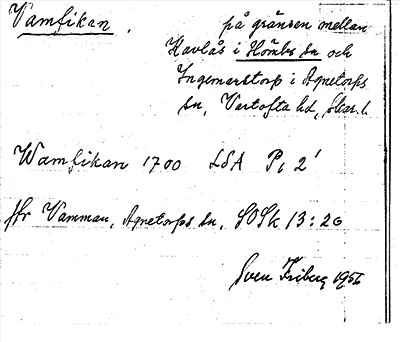 Vamfikan. på gränsen mellan
Havlås i Hömbs sn och
Ingemarstorp i Agnetorps
sn, Vartofta hd, Skar. l.
Wamfikan 1700 LSA P, 2'
Jfr Vamman, Agnetorps sn, SOSk 13:26
Sven Friberg 1956